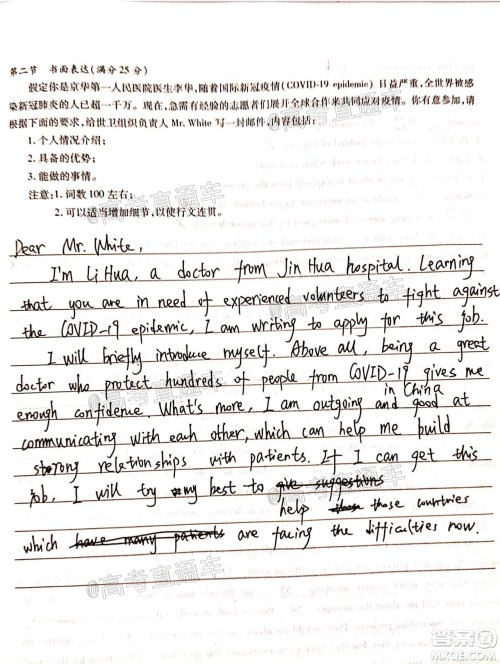 第二节 书面表达(满分25分)
假定你是京华第一人民医院医生李华,随着国际新冠疫情(COVID-19 epidemic)日益严重,全世界被感
染新冠肺炎的人已超一千万。现在,急需有经验的志愿者们展开全球合作来共同应对疫情。你有意参加,请
根据下面的要求,给世卫组织负责人 Mr. White 写一封邮件,内容包括:
1. 个人情况介绍;
2. 具备的优势;
3. 能做的事情。
注意:1. 词数100左右;
2. 可以适当增加细节,以使行文连贯。
Dear Mr. White,
I'm Li Hua, a doctor from Jin Hua hospital. Learning
that you are in need of experienced volunteers to fight against
the COVID-19 epidemic, I am writing to apply for this job.
I will briefly introduce myself. Above all, being a great
doctor who protect hundreds of people from COVID-19 gives me
in China
enough confidence. What's more, I am outgoing and good at
communicating with each other, which can help me build
strong relationships with patients. If I can get this
job, I will try my best to give suggestions
help those those countries
which have many patients are facing the difficulties now.
@高考直通车
@高考直通车
@高考直通车
@高考直通车
答案圈
MXQE.COM